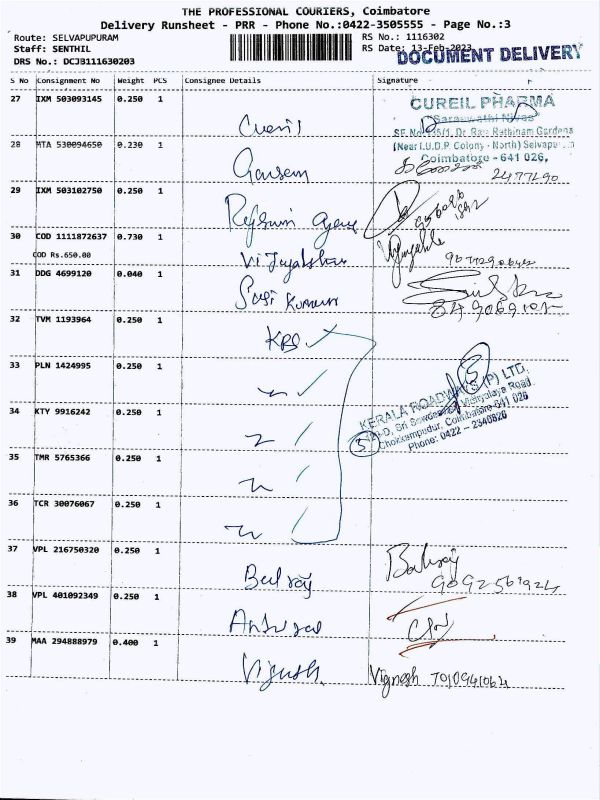 THE PROFESSIONAL COURIERS, Coimbatore
Delivery Runsheet - PRR - Phone No.:0422-3505555 - Page No.:3
Route: SELVAPUPURAM
RS No.: 1116302
Staff: SENTHIL
RS Date: 13-Feb-2023
DOCUMENT DELIVERY
DRS No.: DCJB111630203
S No Consignment No Weight PCS Consignee Details Signature
27 IXM 503093145 0.250 1
CUREIL PHARMA
Saraswathi Nivas
(Near I.U.D.P. Colony - North) Selvapu
Coimbatore - 641 026,
28 MTA 530094650 0.230 1
2477290
29 IXM 503102750 0.250 1
30 COD 1111872637 0.730 1
COD Rs.650.00
31 DDG 4699120 0.040 1 Sasi Kumar
849069102
32 TVM 1193964 0.250 1 KRS ✓
33 PLN 1424995 0.250 1 ✓
KERALA ROADWAYS (P) LTD.
Chokkampudur, Coimbatore-641 026
Phone: 0422 - 2340826
34 KTY 9916242 0.250 1
35 TMR 5765366 0.250 1
36 TCR 30076067 0.250 1
37 VPL 216750320 0.250 1 Balraj
Balraj
38 VPL 401092349 0.250 1
39 MAA 294888979 0.400 1 Vignesh
Vignesh 7010941064